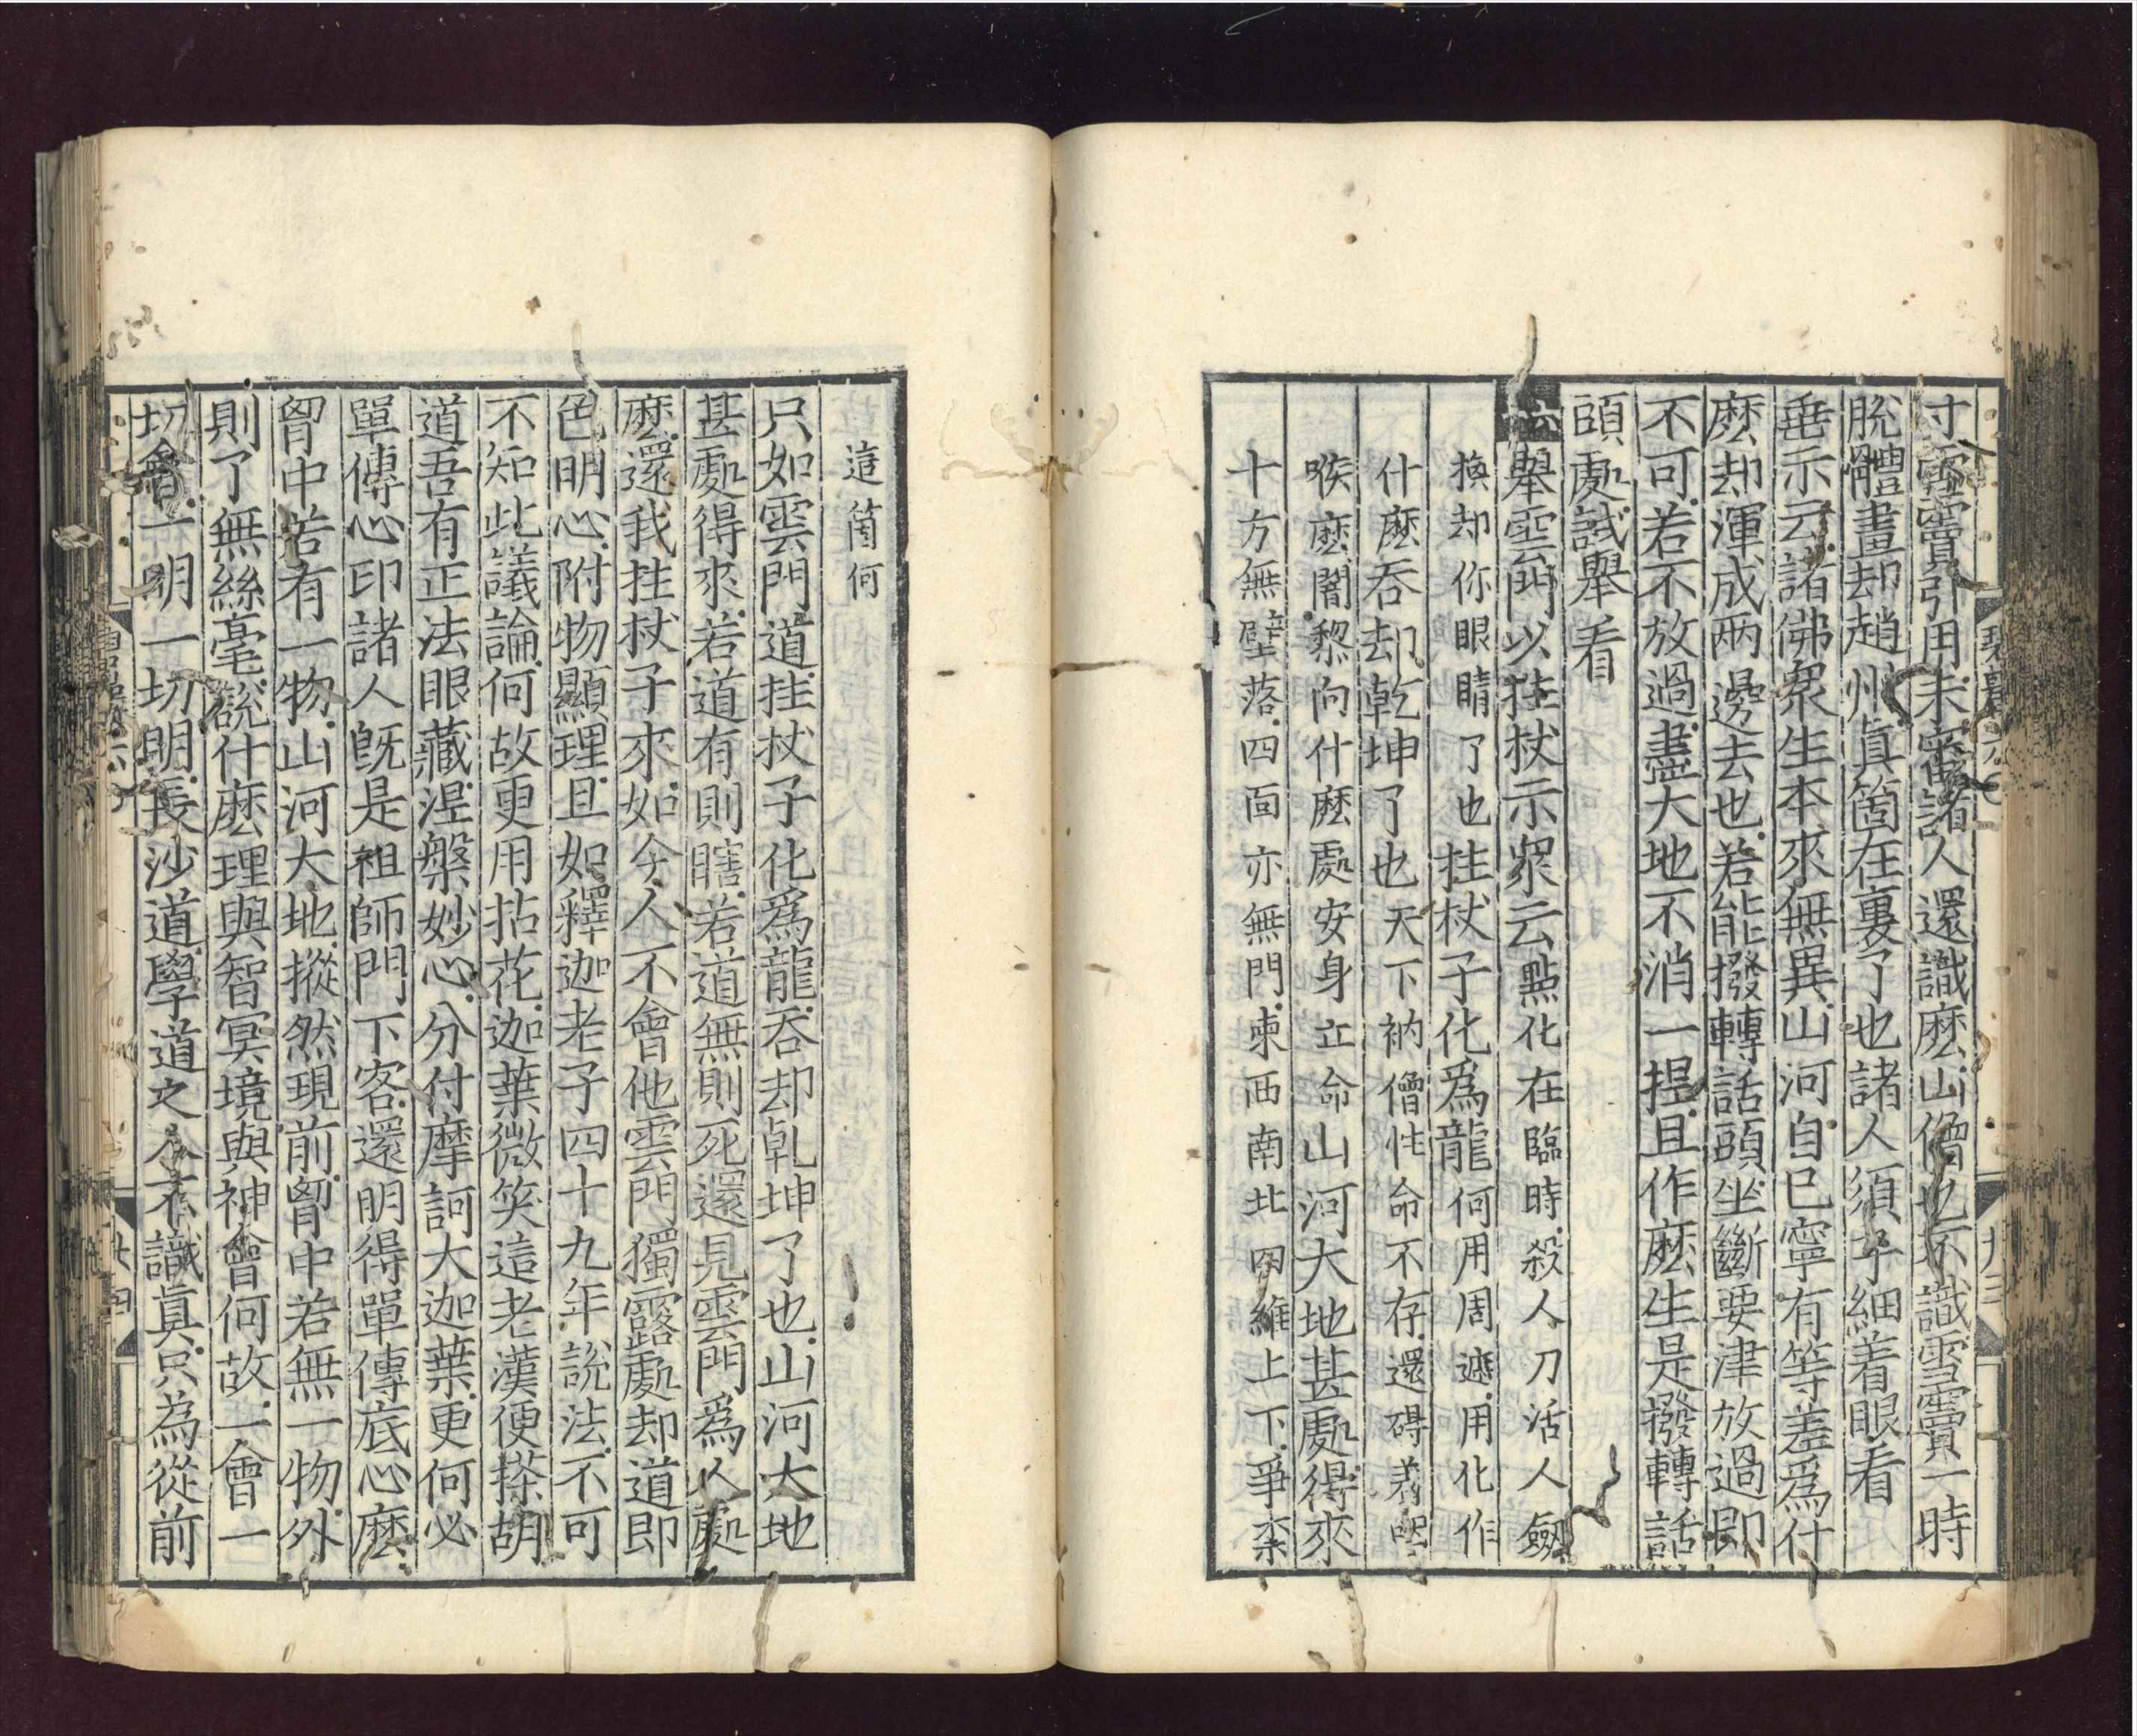 寸雪竇引用未審諸人還識麽山僧也不識雪竇一時
脫體畫却趙州眞箇在裏了也諸人須子細着眼看
垂示云諸佛衆生本來無異山河自己寧有等差爲什
麽却渾成兩邊去也若能撥轉話頭坐斷要津放過即
不可若不放過盡大地不消一揑且作麽生是撥轉話
頭處試舉看
六
舉雲門以拄杖示衆云點化在臨時殺人刀活人劔
換却你眼睛了也拄杖子化爲龍何用周遮用化作
什麽吞却乾坤了也天下衲僧性命不存還碍着咽
喉麽闍黎向什麽處安身立命山河大地甚處得來
十方無壁落四面亦無門東西南北四維上下爭柰
這箇何
只如雲門道拄杖子化爲龍吞却乹坤了也山河大地
甚處得來若道有則瞎若道無則死還見雲門爲人處
麽還我拄杖子來如今人不會他雲門獨露處却道即
色明心附物顯理且如釋迦老子四十九年說法不可
不知此議論何故更用拈花迦葉微笑這老漢便搽胡
道吾有正法眼藏涅槃妙心分付摩訶大迦葉更何必
單傳心印諸人既是祖師門下客還明得單傳底心麽
胷中若有一物山河大地摐然現前胷中若無一物外
則了無絲毫說什麽理與智冥境與神會何故一會一
切會一明一切明長沙道學道之人不識眞只為從前